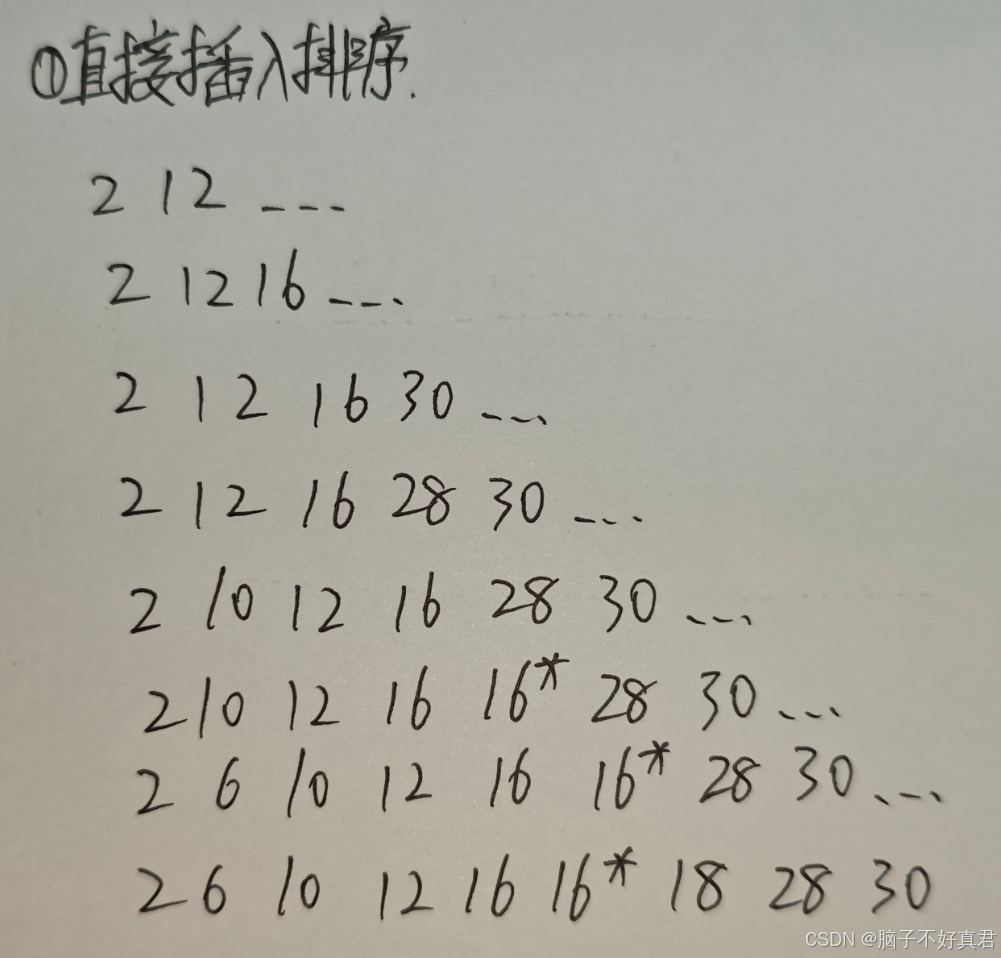 ①直接插入排序.
2 12 ---
2 12 16 ---
2 12 16 30 ---
2 12 16 28 30 ---
2 10 12 16 28 30 ---
2 10 12 16 16* 28 30 ---
2 6 10 12 16 16* 28 30 ---
2 6 10 12 16 16* 18 28 30
CSDN @脑子不好真君